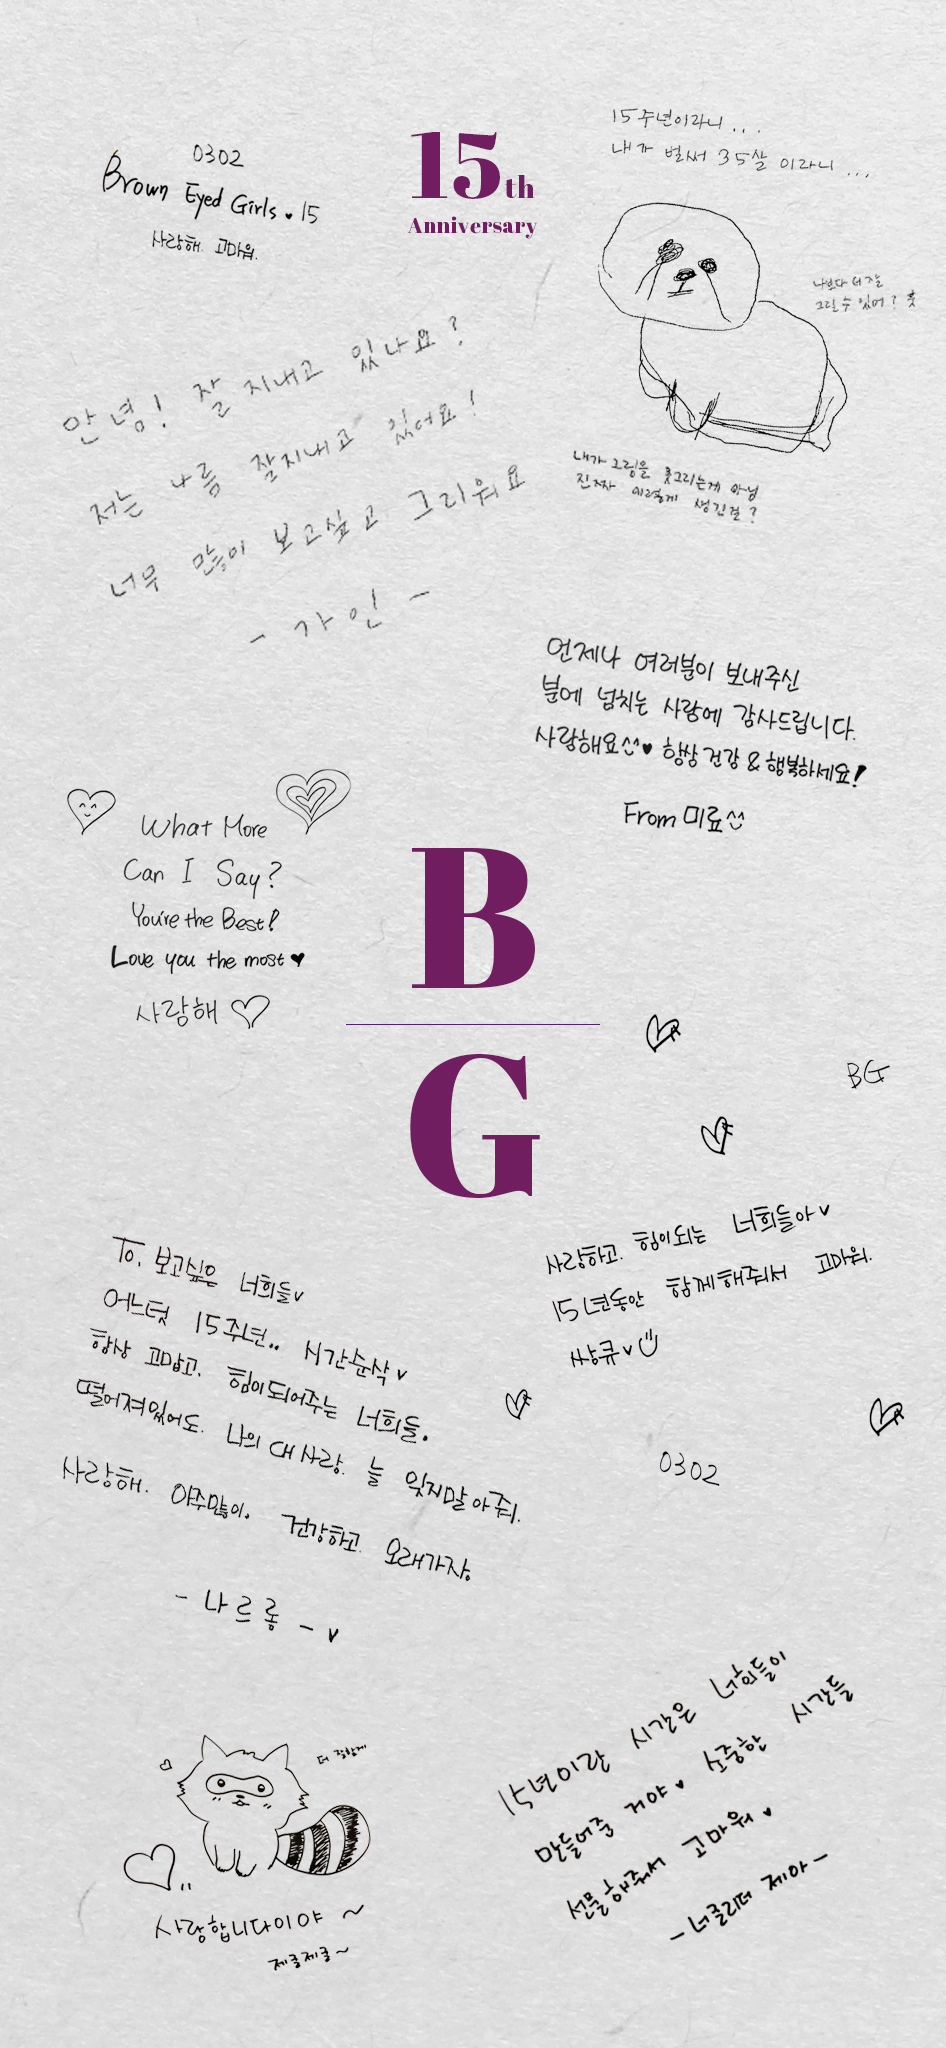 15th
Anniversary
0302
Brown Eyed Girls ♥ 15
사랑해. 고마워.
15주년이라니...
내가 벌써 35살 이라니...
나보다 더 잘
그릴수 있어? 훗
내가 그림을 못그리는게 아님
진짜 이렇게 생긴걸?
안녕! 잘 지내고 있나요?
저는 나름 잘지내고 있어요!
너무 많이 보고싶고 그리워요
- 가인 -
언제나 여러분이 보내주신
분에 넘치는 사랑에 감사드립니다.
사랑해요^^♥ 항상 건강 & 행복하세요!
From 미료^^
What More
Can I Say?
You're the Best!
Love you the most ♥
사랑해 ♡
B
G
BG
사랑하고. 힘이되는 너희들아♥
15년동안 함께해줘서 고마워.
쌍큐♥
To. 보고싶은 너희들♥
어느덧 15주년.. 시간순삭♥
항상 고맙고. 힘이되어주는 너희들.
떨어져있어도. 나의 대 사랑. 늘 잊지말아줘.
사랑해. 아주많이. 건강하고. 오래가자.
- 나르롷 - ♥
0302
더 잘할게
사랑합니다이야 ~
제글제글~
15년이란 시간은 너희들이
만들어준 거야♥ 소중한 시간들
선물해줘서 고마워♥
- 너클리더 제아 -